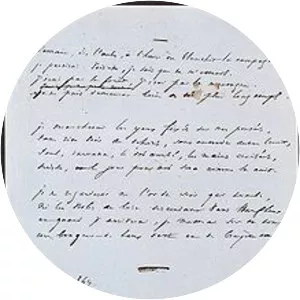 demain, dès l'aube, à l'heure où blanchit la campagne
je partirai. Vois-tu, je sais que tu m'attends.
j'irai par la forêt, j'irai par la montagne.
je ne puis demeurer loin de toi plus longtemps.
je marcherai les yeux fixés sur mes pensées,
sans rien voir au dehors, sans entendre aucun bruit,
seul, inconnu, le dos courbé, les mains croisées,
triste, et le jour pour moi sera comme la nuit.
je ne regarderai ni l'or du soir qui tombe,
ni les voiles au loin descendant vers Harfleur,
et quand j'arriverai, je mettrai sur ta tombe
un bouquet de houx vert et de bruyère en